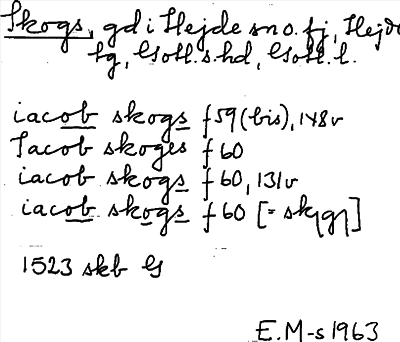 Skogs, gd i Hejde sn o. fj, Hejde
tg, Gotl. s. hd, Gotl. l.
iacob skogs f 59 (bis), 148v
Jacob skoges f 60
iacob skogs f 60, 131v
iacob skogs f 60
1523 skb G
E. M-s 1963